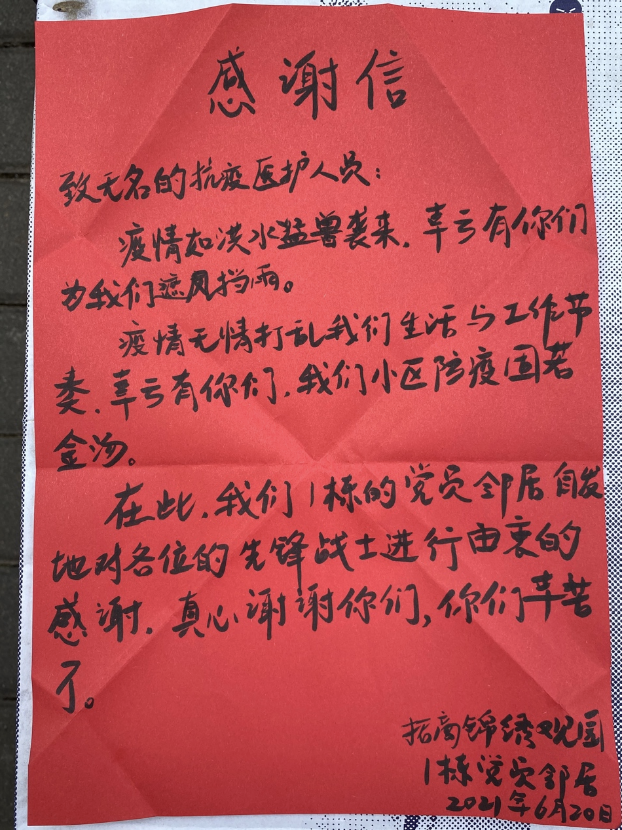 感谢信
致无名的抗疫医护人员：
疫情如洪水猛兽袭来，幸亏有你们
为我们遮风挡雨。
疫情无情打乱我们生活与工作节
奏，幸亏有你们，我们小区防疫固若
金汤。
在此，我们1栋的党员邻居自发
地对各位的先锋战士进行由衷的
感谢，真心谢谢你们，你们辛苦
了。
招商锦绣观园
1栋党员邻居
2021年6月20日